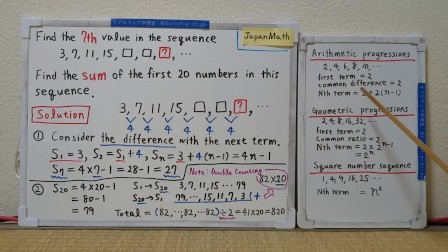 Find the 7th value in the sequence
JapanMath
3, 7, 11, 15, □, □, ?, ⋯
Find the sum of the first 20 numbers in this
sequence.
Solution
3, 7, 11, 15, □, □, ?, ⋯
4 4 4 4 4 4
① Consider the difference with the next term.
S1 = 3, S2 = S1+4, Sn = 3 + 4(n-1) = 4n-1
S7 = 4×7-1 = 28-1 = 27
Note: Double Counting
82×20
② S20 = 4×20-1
= 80-1
= 79
S1→S20 3, 7, 11, 15 ⋯ 79
S20→S1 79, ⋯, 15, 11, 7, 3 (+
Total = (82, ⋯, 82, ⋯ 82) ÷ 2 = 41×20 = 820
Arithmetic progressions
2, 4, 6, 8, 10, ⋯
first term = 2
common difference = 2
Nth term = 2 + 2(n-1)
Geometric progressions
2, 4, 8, 16, 32, ⋯
first term = 2
Common ratio = 2
Nth term = 2 × 2^n-1
= 2^n
Square number sequence
1, 4, 9, 16, 25 ⋯
Nth term = n²